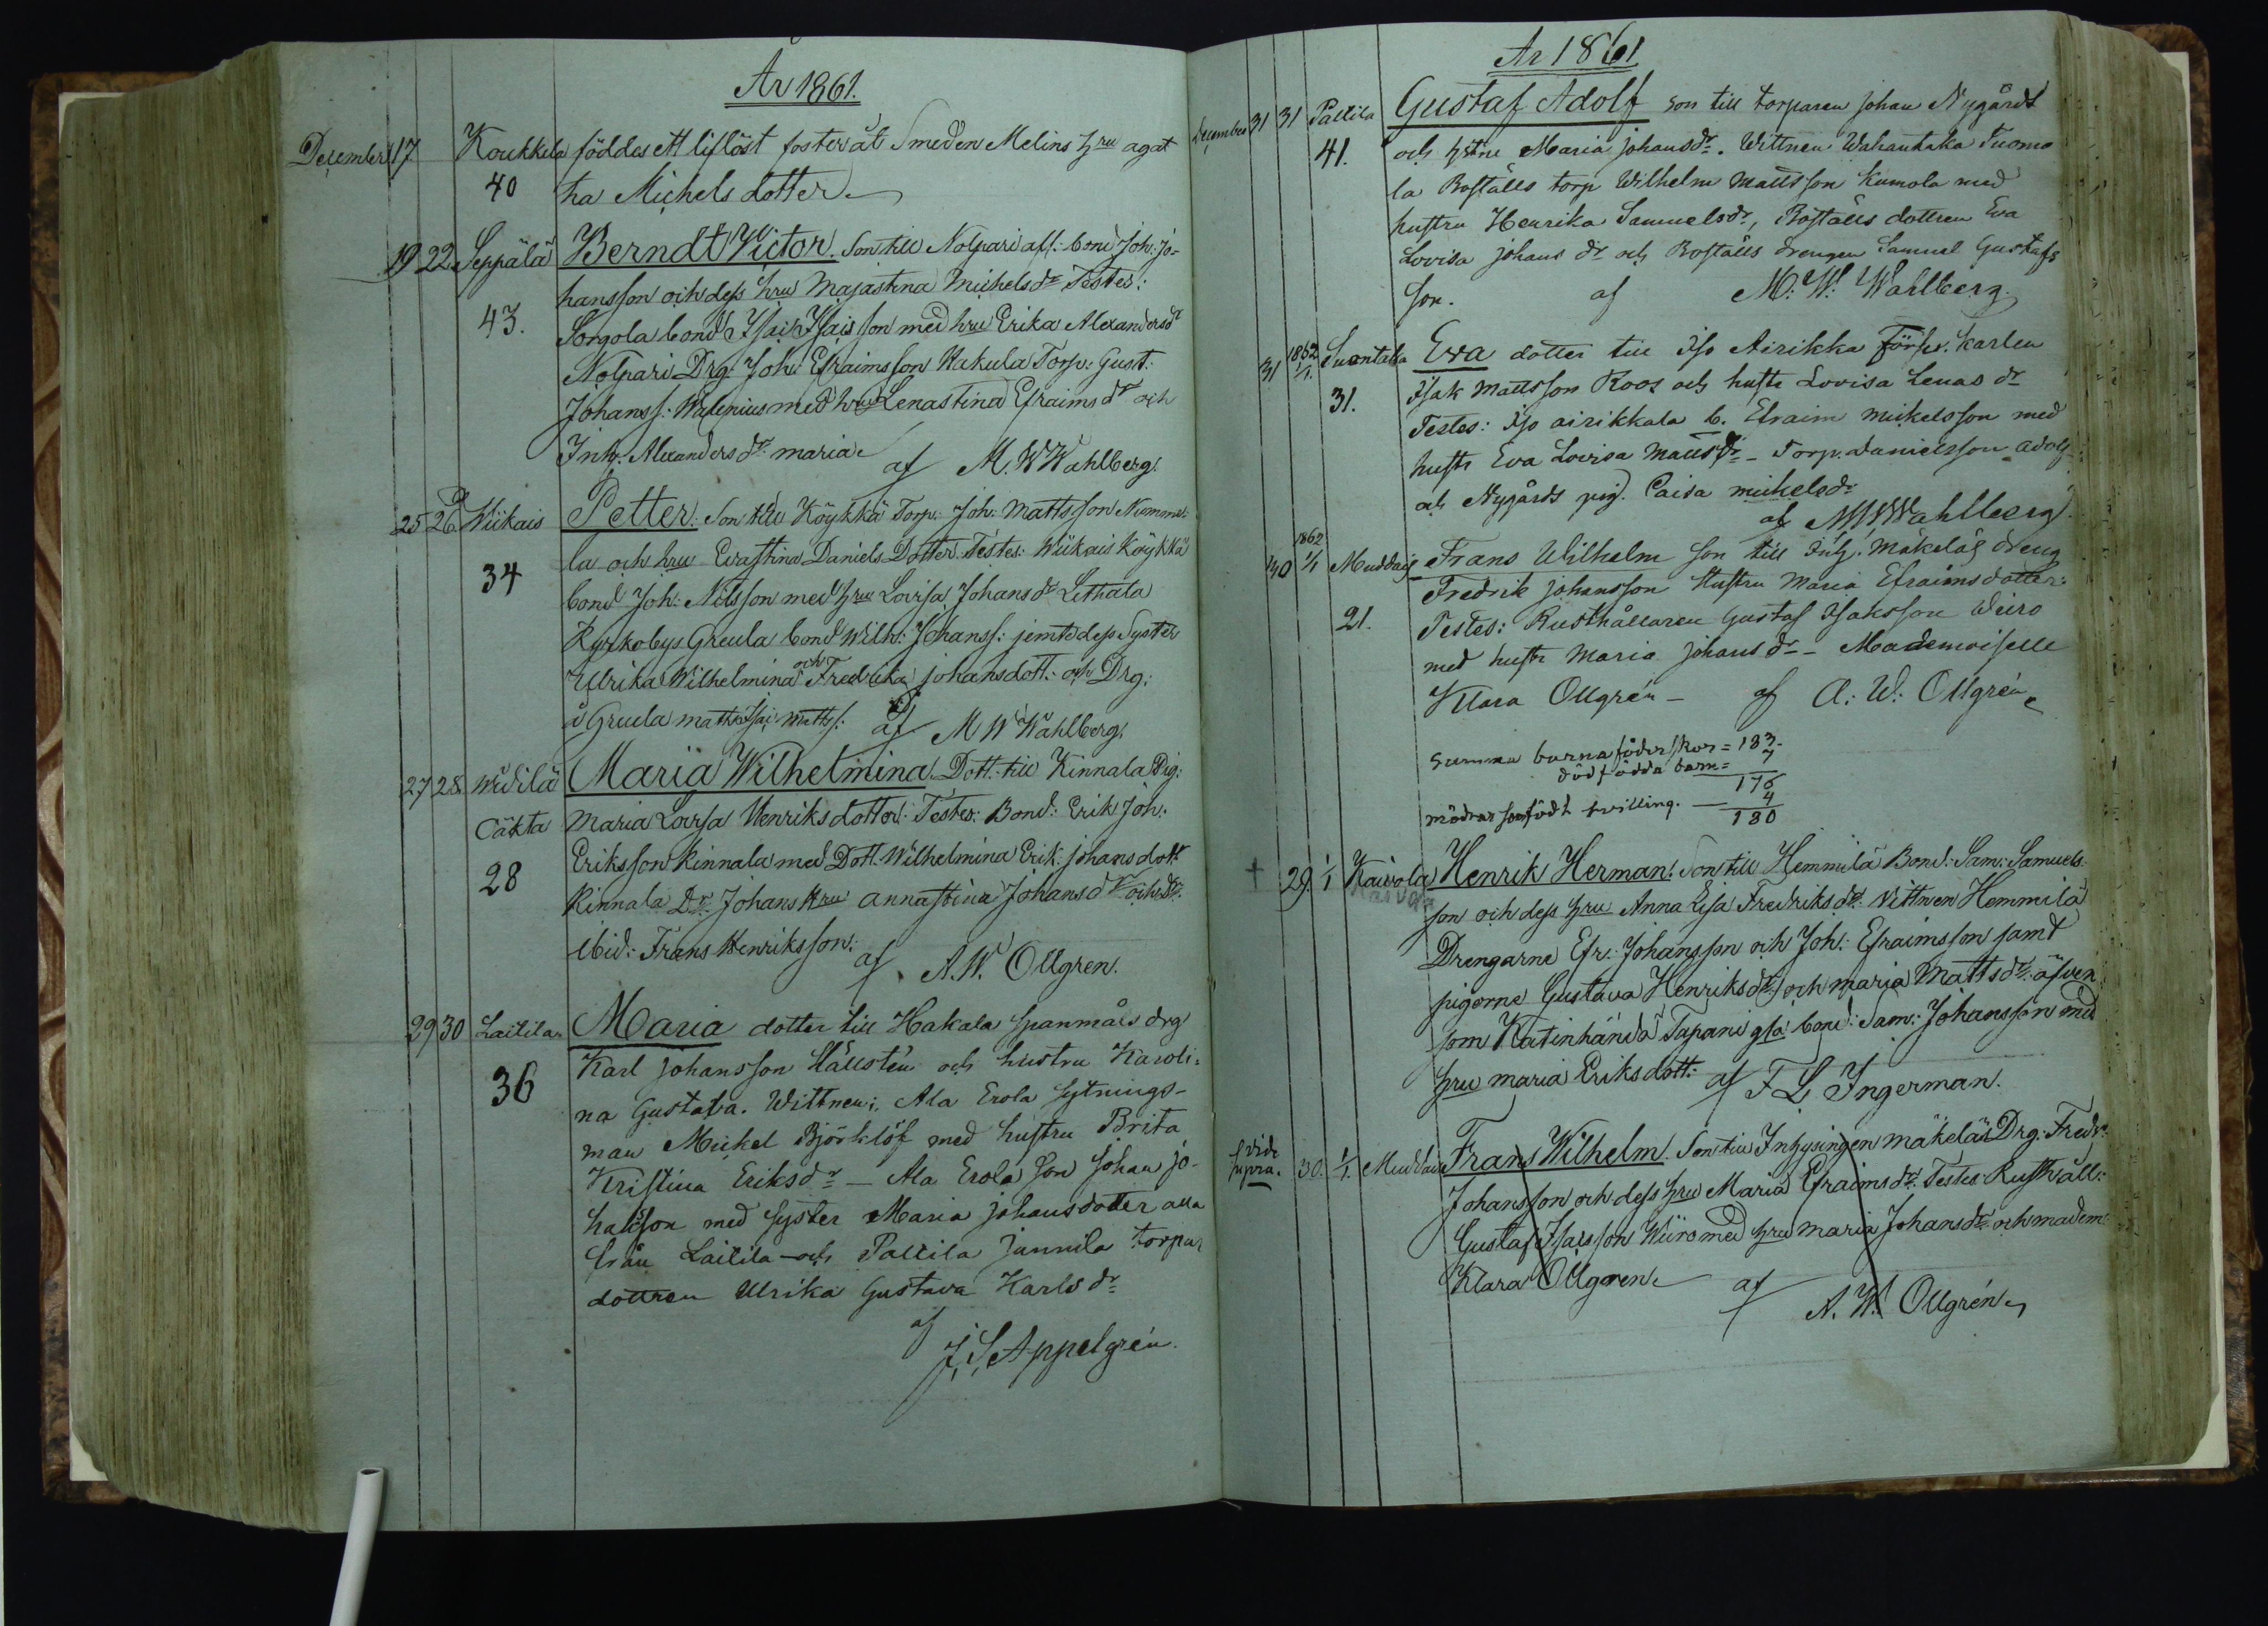 År 1861.
December 17 Koukkela föddes ett liflöst foster åt Smeden Melins hru agat
40 ha Michels dotter
19 22 Seppälä Berndt Victor. Son till Nolpari afl: bond Joh: Jo-
hansson och dess hru Majastina Michelsdr Testes:
43. Sorgola bond Isaik Isaisson med hru Erika Alexandersdr
Nolpari Drg: Joh: Efraimsson Hakula Torp: Gust:
Johanss: Walenius med hru Lenastina Efraimsdr och
Inh: Alexandersdr: maria
af M. W Wahlberg.
25 26 Wiikais Petter. Son till Köykkä Torp: Joh: Mattsson Numme-
la och hru Evastina Daniels Dotter. Testes: Wiikais Köykkä
34 bond Joh: Nilsson med hru Lovisa Johansdr Lethala
Kyrkobys Greula bond Wilh: Johanss: jemte dess Syster
Ulrika Wilhelmina och Fredrika johansdott: och Drg:
i Greula matts Isai Matts: af M W Wahlberg.
27 28. Widilä Maria Wilhelmina Dott: till Kinnala Pig:
Cäkta Maria Lovisa Henriksdotter. Testes: Bond: Erik Joh:
28 Eriksson Kinnala med Dott. Wilhelmina Erik: johansdott
Kinnala Dr: Johans Hru annastina Johansdr och Dr:
ibid: Frans Henriksson:
af A. W. Ollgren.
29 30 Laitila. Maria dotter till Hakala Spanmåls drg
36 Karl Johansson Hällstén och hustru Karoli-
na Gustava. Wittnen: Ala Erola sytnings-
man Mickel Björklöf med hustru Brita
Kristina Eriksdr – Ala Erola Son Johan jo-
hansson med syster Maria johansdotter alla
från Laitila – och Pattila Junnila torpar
dottren Ulrika Gustava Karlsdr
af
J. S. Appelgrén.
År 1861
December 31 31 Pattila Gustaf Adolf son till torparen johan Nygårdt
41. och hstru Maria johansdr. Wittnen Wahantaka Tuomo
la Boställs torp Wilhelm Mattsson Kumola med
hustru Henrika Samuelsdr, Boställs dottren Eva
Lovisa johansdr och Boställs drengen Samuel Gustafs
son. af M. W. Wahlberg.
31 1862 1/1. Suontaka Ewa dotter till Iso Airikka Försv. Karlen
31. Isak Mattsson Roos och hustr Lovisa Lenasdr
Testes: Iso airikkala b. Efraim Mickelsson med
hustr Eva Lovisa Mattsdr – Torp. Danielsson Adolf
och Nygårds pig. Caisa mickelsdr
af M W Wahlberg.
30 1862 1/1 Muddais Frans Wilhelm son till Inh: Mäkeläs dreng
Fredrik johansson Hustru Maria Efraimsdotter:
21. Testes: Rusthållaren Gustaf Isaksson Wiiro
med hustr Maria johansdr – Mademoiselle
Klara Ollgrén – af A. W. Ollgrén
Summa barnaföderskor = 183.
dödfödda barn = 7
176
mödrar som födt tvilling. — 4
180
† 29. 1/1 Kaivola Henrik Herman. Son till Hemmilä Bond: Sam: Samuels-
Kaivola
son och dess hru Anna Lisa Fredriksdr: Vittnen Hemmilä
Drengarne Efr: Johansson och Joh: Efraimsson samt
pigorne Gustava Henriksdr och Maria Mattsdr: äfven
som Katinhändä Tapani gla: bond: Sam: Johansson med
hru maria Eriksdott: af F L Ingerman.
vide supra. 30. 1/1. Muddais Frans Wilhelm. Son till Inhysingen mäkeläs Drg: Fredr:
Johansson och dess hru Maria Efraimsdr: Testes: Rusthåll:
Gustaf Isaksson Wiiro med hru maria Johansdr och madem:
Klara Ollgren af
A. W. Ollgrén